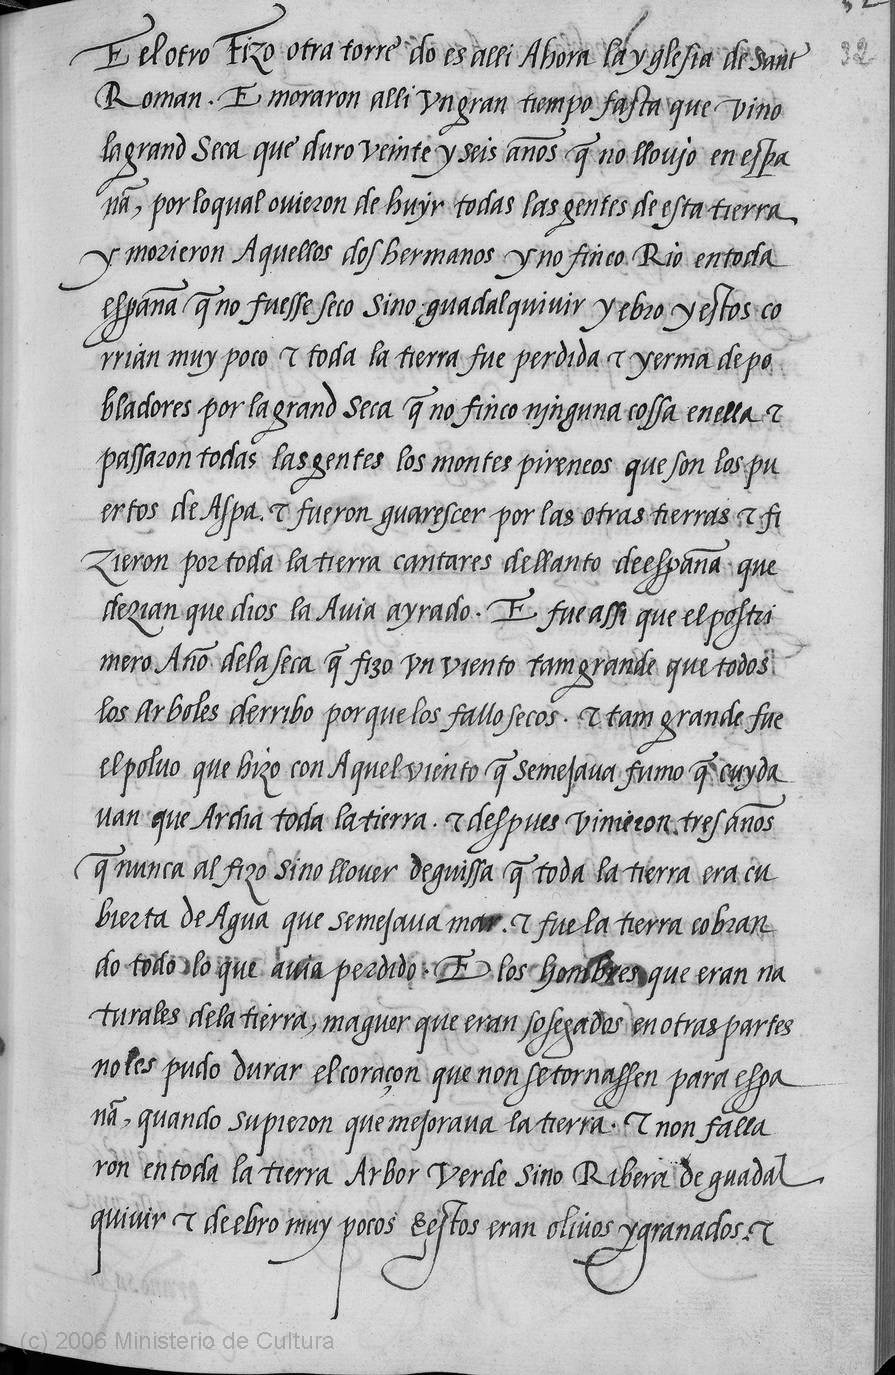 32
E el otro Fizo otra torre do es alli Ahora la yglesia de Sant
Roman. E moraron alli vn gran tiempo fasta que vino
la grand Seca que duro veinte y seis años q̃ no llouio en espa
ña, por lo qual ouieron de huyr todas las gentes de esta tierra
y morieron Aquellos dos hermanos y no finco Rio en toda
españa q̃ no fuesse seco Sino guadalquiuir y ebro y estos co
rrian muy poco ⁊ toda la tierra fue perdida ⁊ yerma de po
bladores por la grand Seca q̃ no finco ninguna cossa en ella ⁊
passaron todas las gentes los montes pireneos que son los pu
ertos de Aspa. ⁊ fueron guarescer por las otras tierras ⁊ fi
zieron por toda la tierra cantares de llanto de españa que
dezian que dios la Auia ayrado. E fue assi que el postri
mero Año de la seca q̃ fizo vn viento tam grande que todos
los arboles derribo porque los fallo secos. ⁊ tam grande fue
el poluo que hizo con Aquel viento q̃ semejaua fumo q̃ cuyda
uan que Ardia toda la tierra. ⁊ despues vinieron tres años
q̃ nunca al fizo Sino llouer de guissa q̃ toda la tierra era cu
bierta de Agua que semejaua mar. ⁊ fue la tierra cobran
do todo lo que auia perdido. E los hombres que eran na
turales de la tierra, maguer que eran sosegados en otras partes
no les pudo durar el coraçon que non se tornassen para espa
ña, quando supieron que mejoraua la tierra. ⁊ non falla
ron en toda la tierra Arbor Verde Sino Ribera de guadal
quiuir ⁊ de ebro muy pocos & estos eran oliuos y granados. ⁊
(c) 2006 Ministerio de Cultura